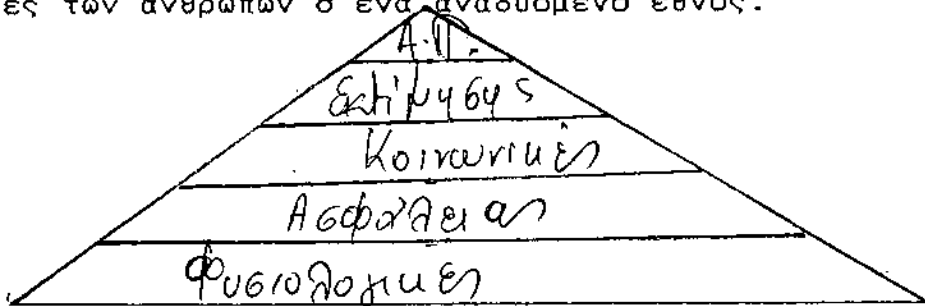 ες των ανθρώπων σ ένα αναδυόμενο έθνος.
Α.Π.
Εκτίμησης
Κοινωνικές
Ασφάλειας
Φυσιολογικές